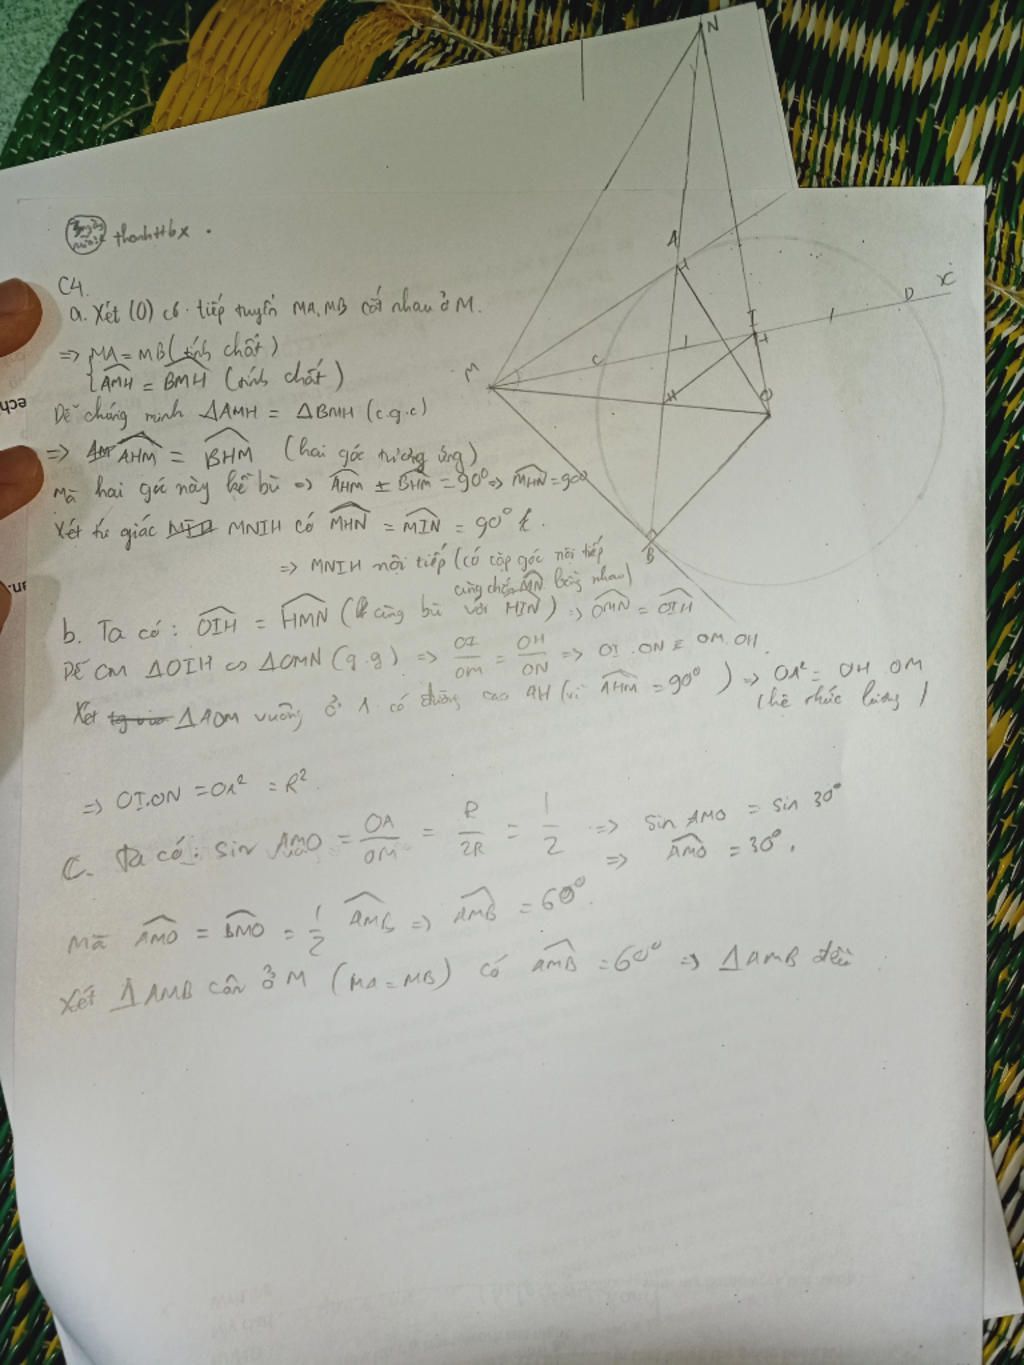 thanhttbx.
C4.
a. Xét (O) có tiếp tuyến MA, MB cắt nhau ở M.
=> MA = MB (tính chất)
AMH = BMH (tính chất)
Dễ chứng minh ΔAMH = ΔBMH (c.g.c)
=> AHM = BHM (hai góc tương ứng)
Mà hai góc này kề bù => AHM = BHM = 90° => MHN = 90°
Xét tứ giác MNIH có MHN = MIN = 90°
=> MNIH nội tiếp (có cặp góc nội tiếp
cùng chắn MN bằng nhau)
b. Ta có: OIH = HMN (cùng bù với HIN) => OMN = OIH
Dễ CM ΔOIH ∽ ΔOMN (g.g) => OI/OM = OH/ON => OI.ON = OM.OH.
Xét ΔAOM vuông ở A có đường cao AH (vì AHM = 90°) => OA² = OH OM
(hệ thức lượng)
=> OI.ON = OA² = R²
C. Ta có: sin AMO = OA/OM = R/2R = 1/2 => sin AMO = sin 30°
=> AMO = 30°.
Mà AMO = BMO = 1/2 AMB => AMB = 60°.
Xét ΔAMB cân ở M (MA = MB) có AMB = 60° => ΔAMB đều
N
A
D
x
I
C
M
H
O
B